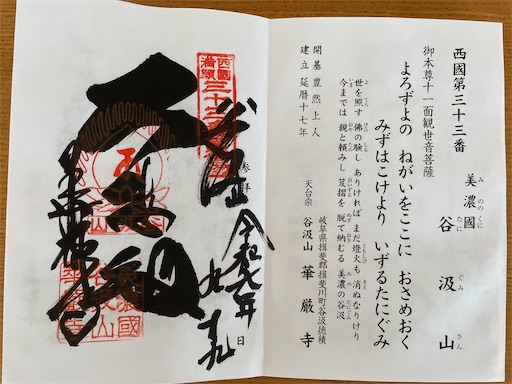 西國第三十三番
美濃國 谷汲山
御本尊十一面観世音菩薩
よろずよの ねがいをここに おさめおく
みずはこけより いずるたにぐみ
世を照す 佛の験し ありければ まだ燈火も 消ぬなりけり
今までは 親と頼みし 笈摺を 脱て納むる 美濃の谷汲
開基 豊然上人
建立 延暦十七年
岐阜県揖斐郡揖斐川町谷汲徳積
天台宗 谷汲山 華厳寺
令和七年
日
西國
満願
三十三